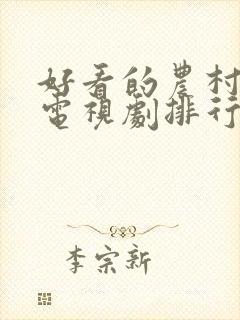 好看的農村
電視劇排行
李宗新